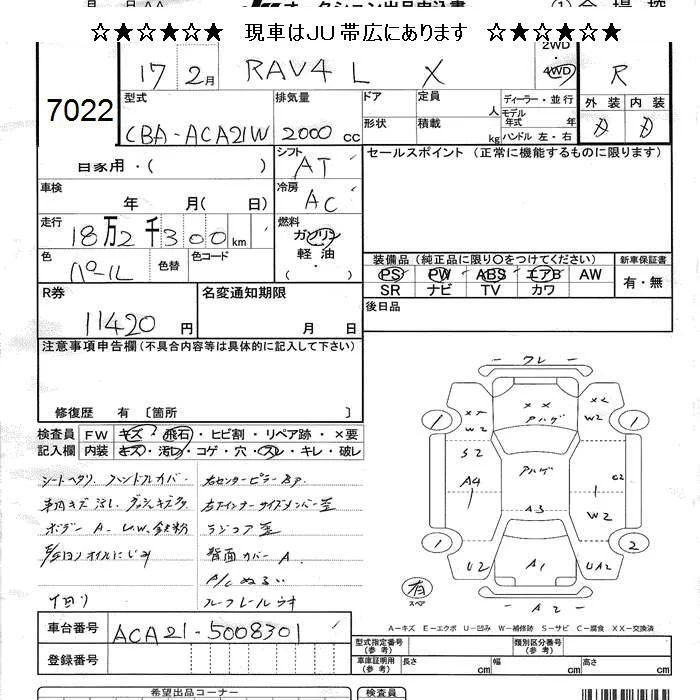 ☆★☆★☆★ 現車はJU帯広にあります ☆★☆★☆★
17 2月 RAV4 L X 2WD・4WD R
7022
型式 排気量 ドア 定員 人 ディーラー・並行 外装 内装
CBA-ACA21W 2000cc 形状 積載 kg モデル年式 年 ハンドル 左・右
自家用・( ) シフト AT セールスポイント (正常に機能するものに限ります)
車検 年 月( 日) 冷房 AC
走行 18万2千300km 燃料 ガソリン
色 パール 色替 色コード 軽油
装備品 (純正品に限り○をつけてください) 新車保証書
PS PW ABS エアB AW 有・無
SR ナビ TV カワ
R券 11420円 名変通知期限 月 日 後日品
注意事項申告欄 (不具合内容等は具体的に記入して下さい)
修復歴 有 〔箇所 〕
検査員 FW キズ・飛石・ヒビ割・リペア跡・×要
記入欄 内装 キズ・汚レ・コゲ・穴・スレ・キレ・破レ
シートヘタリ ハンドルカバー 右センターピラーBP
車内キズ 汚し ダッシュキズ 右インナーサイドメンバー歪
ボデー A・U・W、鉄粉 ラジコア歪
オイルにじみ 背面カバー A
A/Cぬるい
下回リ ルーフレールウキ
ワレ
XX XX XX
W2 アハゲ W2
1 1
S2 アハゲ C2
A4 A3 W2
1 2
U2 A1 UA2
有 スペア A2
A-キズ E-エクボ U-凹み W-補修跡 S-サビ C-腐食 XX-交換済
車台番号 ACA21-5008301
型式指定番号 (参考) 類別区分番号 (参考)
登録番号
車庫証明用 (参考) 長さ cm 幅 cm 高さ cm
希望出品コーナー 検査員